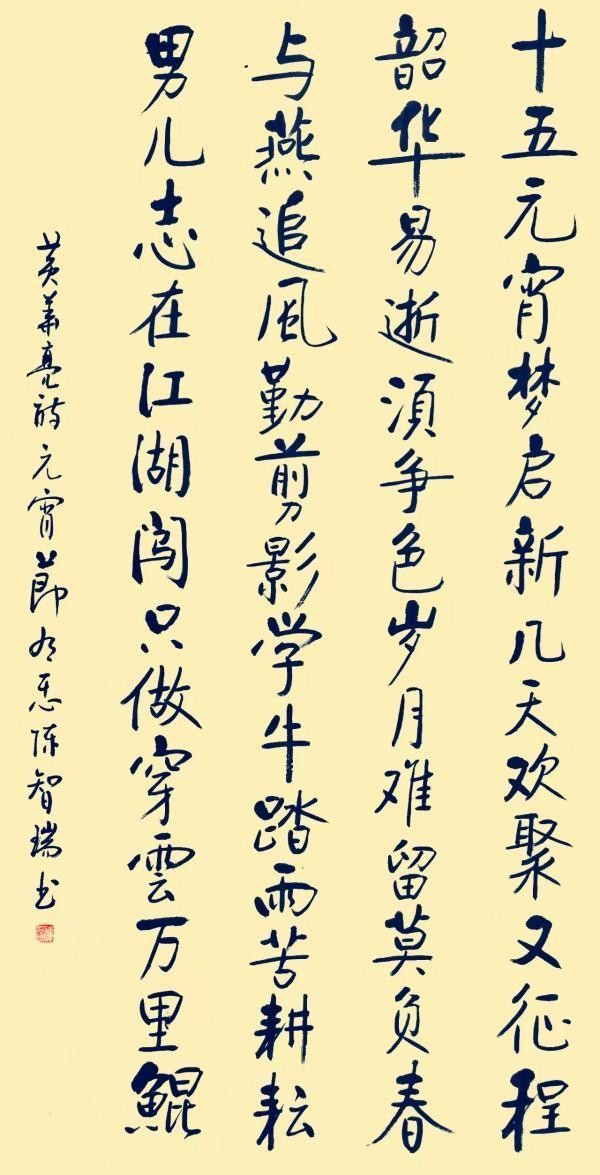 十五元宵梦启新几天欢聚又征程
韶华易逝湏争色岁月难留莫负春
与燕追風勤剪影学牛踏雨苦耕耘
男儿志在江湖闯只做穿雲万里鲲
黄美亮诗元宵节有感陈智瑞书